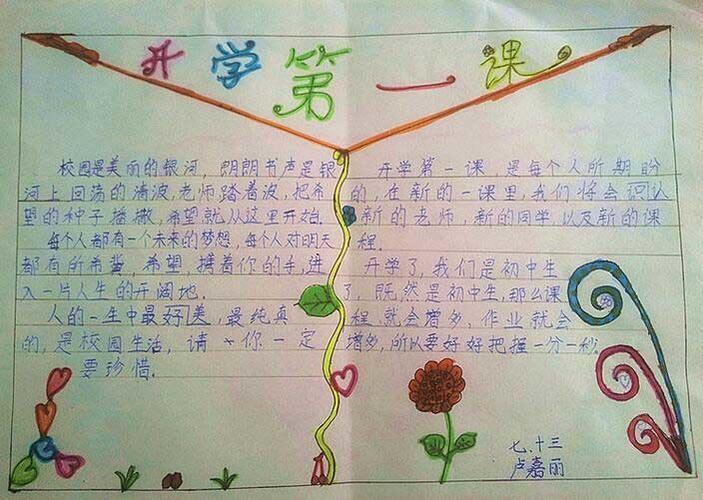 开学第一课
校园是美丽的银河，朗朗书声是银
河上回荡的清波，老师踏着波，把希
望的种子播撒，希望就从这里开始。
每个人都有一个未来的梦想，每个人对明天
都有所希冀，希望，携着你的手，进
入一片人生的开阔地。
人的一生中最好美，最纯真
的，是校园生活，请你一定
要珍惜。
开学第一课，是每个人所期盼
的，在新的一课里，我们将会认
新的老师，新的同学，以及新的课
程。
开学了，我们是初中生
了，既然是初中生，那么课
程就会增多，作业就会
增多，所以要好好把握一分一秒。
七、十三
卢嘉丽